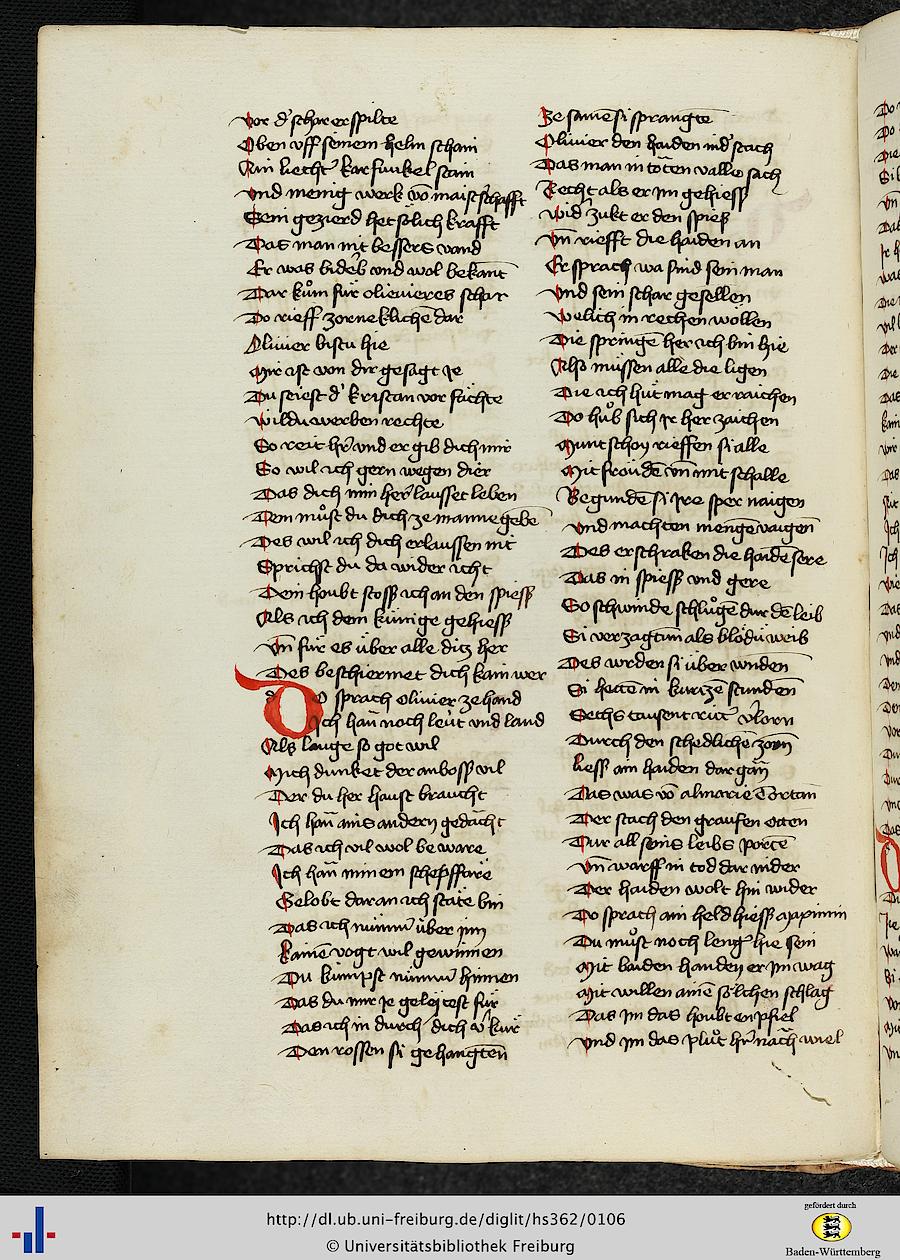 vor d' schar er spilte
Oben vff seinem helm schain
Ain liecht' karfunkel stain
vnd menig werk vō maistschafft
Sein gezierd het sölich krafft
Das man nit bessers vand
Er was bid'b vnd wol bekant
Dar kům für olieuieres schar
Do rieff zornekliche dar
Oliuier bistu hie
Mir ist von dir gesagt ye
Du seiest d' kristan vor fächte
wildu werben rechte
So reit h'r vnd er gib dich mir
So wil ich gern wegen dier
Das dich min her lausset leben
Dem můst du dich ze manne gebē
Des wil ich dich erlaussen nit
Sprichst du da wider icht
Dein houbt stoss ich an den spiess
Als ich dem künige gehiess
Vn̄ für es über alle ditz her
Des beschiermet dich kain wer
Do sprach oliuier ze hand
Ich han̄ noch leüt vnd land
Als lange so got wil
Mich dunket der anboss vil
Der du her haust braucht
Ich han̄ ains andern gedächt
Das ich vil wol beware
Ich han̄ minem schepffäre
Gelobt daran ich stäte bin
Das ich nimm' über jm
kainē vogt wil gewinnen
Du kumpst nimm' hinnen
Das du mir ye geleitest für
Das ich in durch dich v'kür
Den rossen si gehangten̄
Ze samē si sprangtē
Oliuier den haiden nid' stach
Das man in töten valle sach
Recht als er jm gehiess
wid' zukt er den spiess
Vn̄ riefft die haiden an
Er sprach wa sind sein man
Vnd sein schar gesellen
welich in rechen wöllen
Die springē her ich bin hie
Also müssen alle die ligen
Die ich hüt mag erraichen
Do hůb sich ir her zaichen
Muntschoy rieffen si alle
Mit froiidē vn̄ mit schalle
Begundē si ire sper naigen
Vnd machten menge vaigen̄
Des erschraken die haidē sere
Das in spiess vnd gere
So schwinde schlůgē dur dē leib
Si verzagtan als blödü weib
Des wrden si über wnden̄
Si hetten in kurtzē stunden̄
Sechs tausent ritt' v'lorn
Durch den schedlichē zorn̄
liess ain haiden dar gan̄
Das was vō almarie
Der stach den graufen otten
Dur all seins leibs portē
Vn̄ warff in tod dar nider
Der haiden wolt hin wider
Do sprach ain held hiess appinnin
Du můst noch leng' hie sein
Mit baiden handen er jm wag
Mit willen ainē sölchen schlag
Das jm das houbt enpfiel
Vnd jm das plůt h'r nach wiel
http://dl.ub.uni-freiburg.de/diglit/hs362/0106
© Universitätsbibliothek Freiburg
gefördert durch
Baden-Württemberg